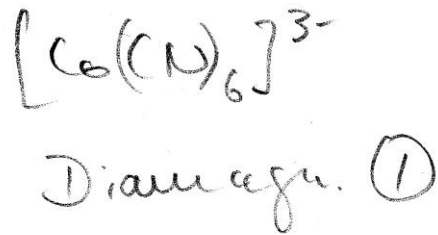 [Co(CN)₆]³⁻
Diamagn. ①